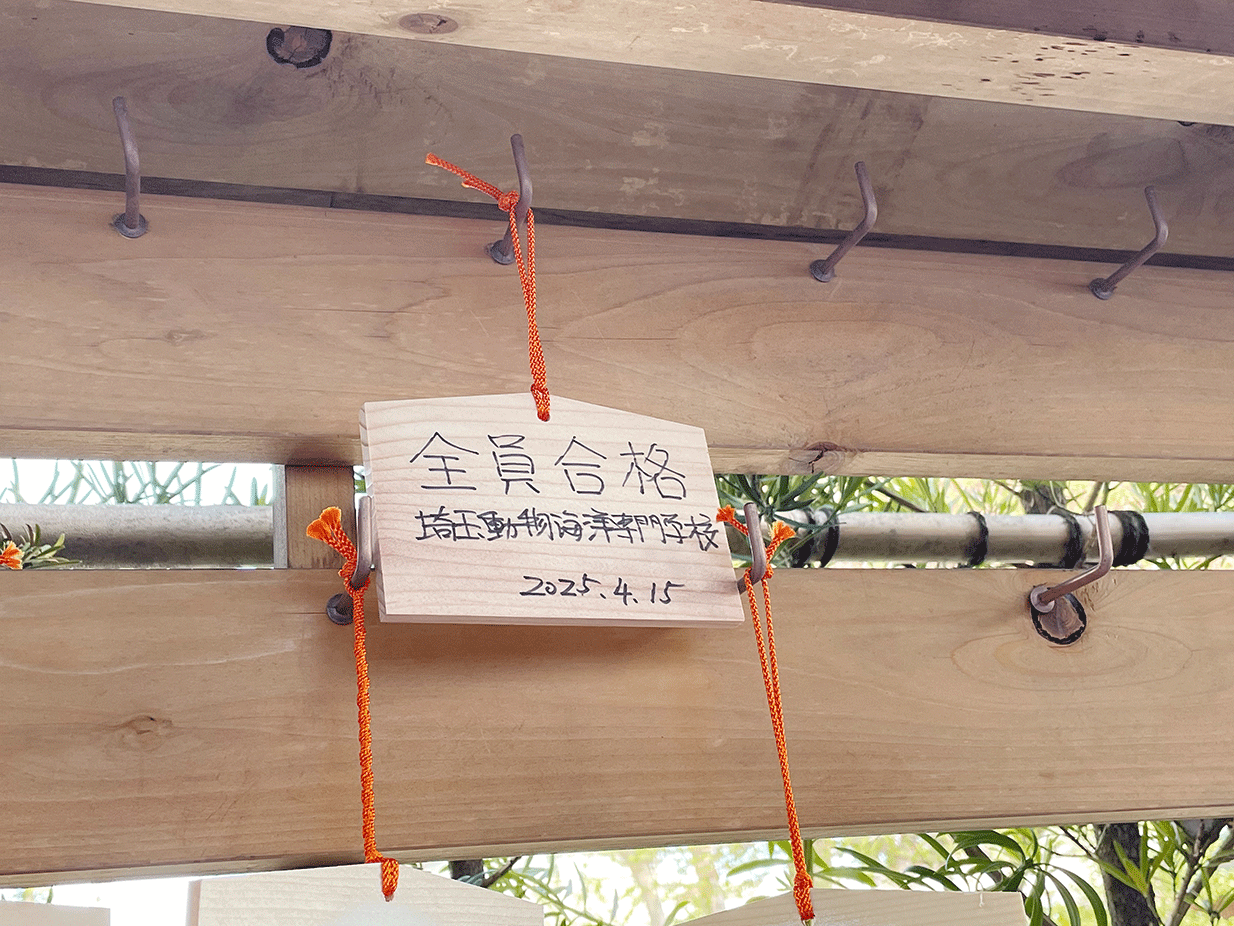 全員合格
埼玉動物海洋専門学校
2025.4.15